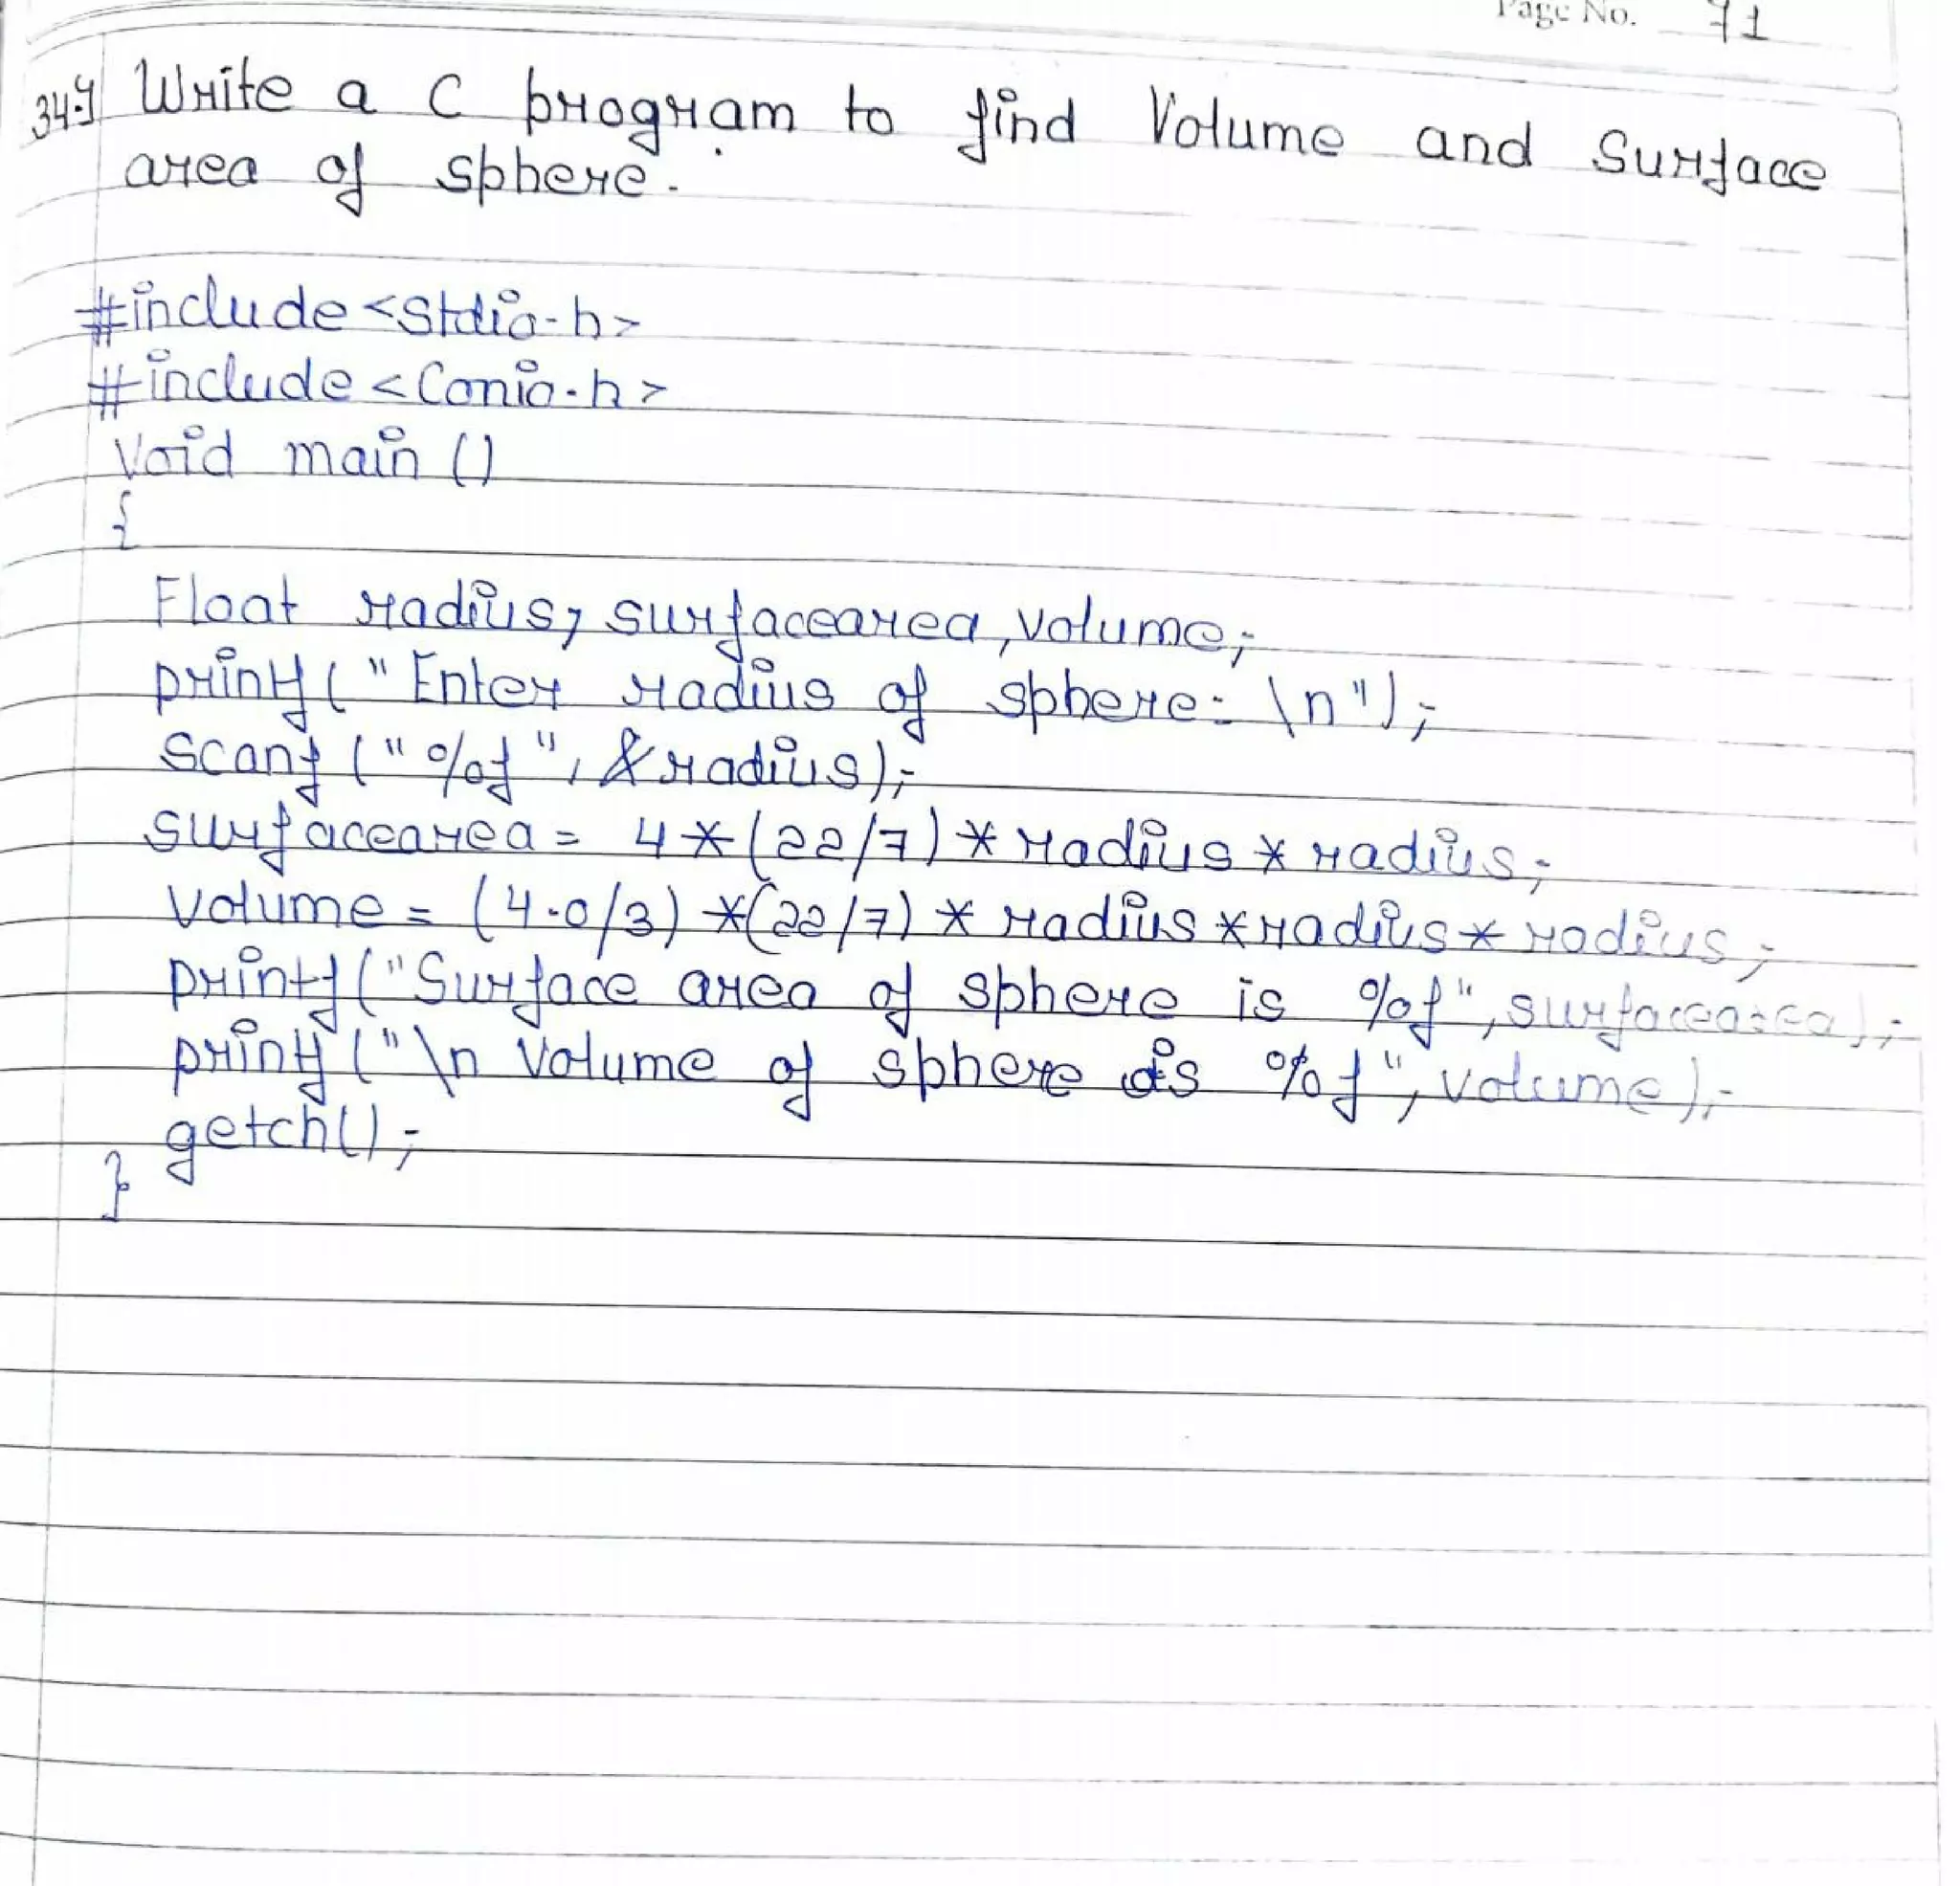 Page No. 71
34.) Write a C program to find Volume and Surface
area of sphere.
#include<Stdio.h>
#include<Conio.h>
Void main ()
{
Float radius, surfacearea, volume;
printf ("Enter radius of sphere: \n");
Scanf ("%f", &radius);
surfacearea = 4*(22/7)*radius*radius;
Volume = (4.0/3)*(22/7)*radius*radius*radius;
printf ("Surface area of sphere is %f", surfacearea);
printf ("\n Volume of sphere is %f", volume);
getch();
}